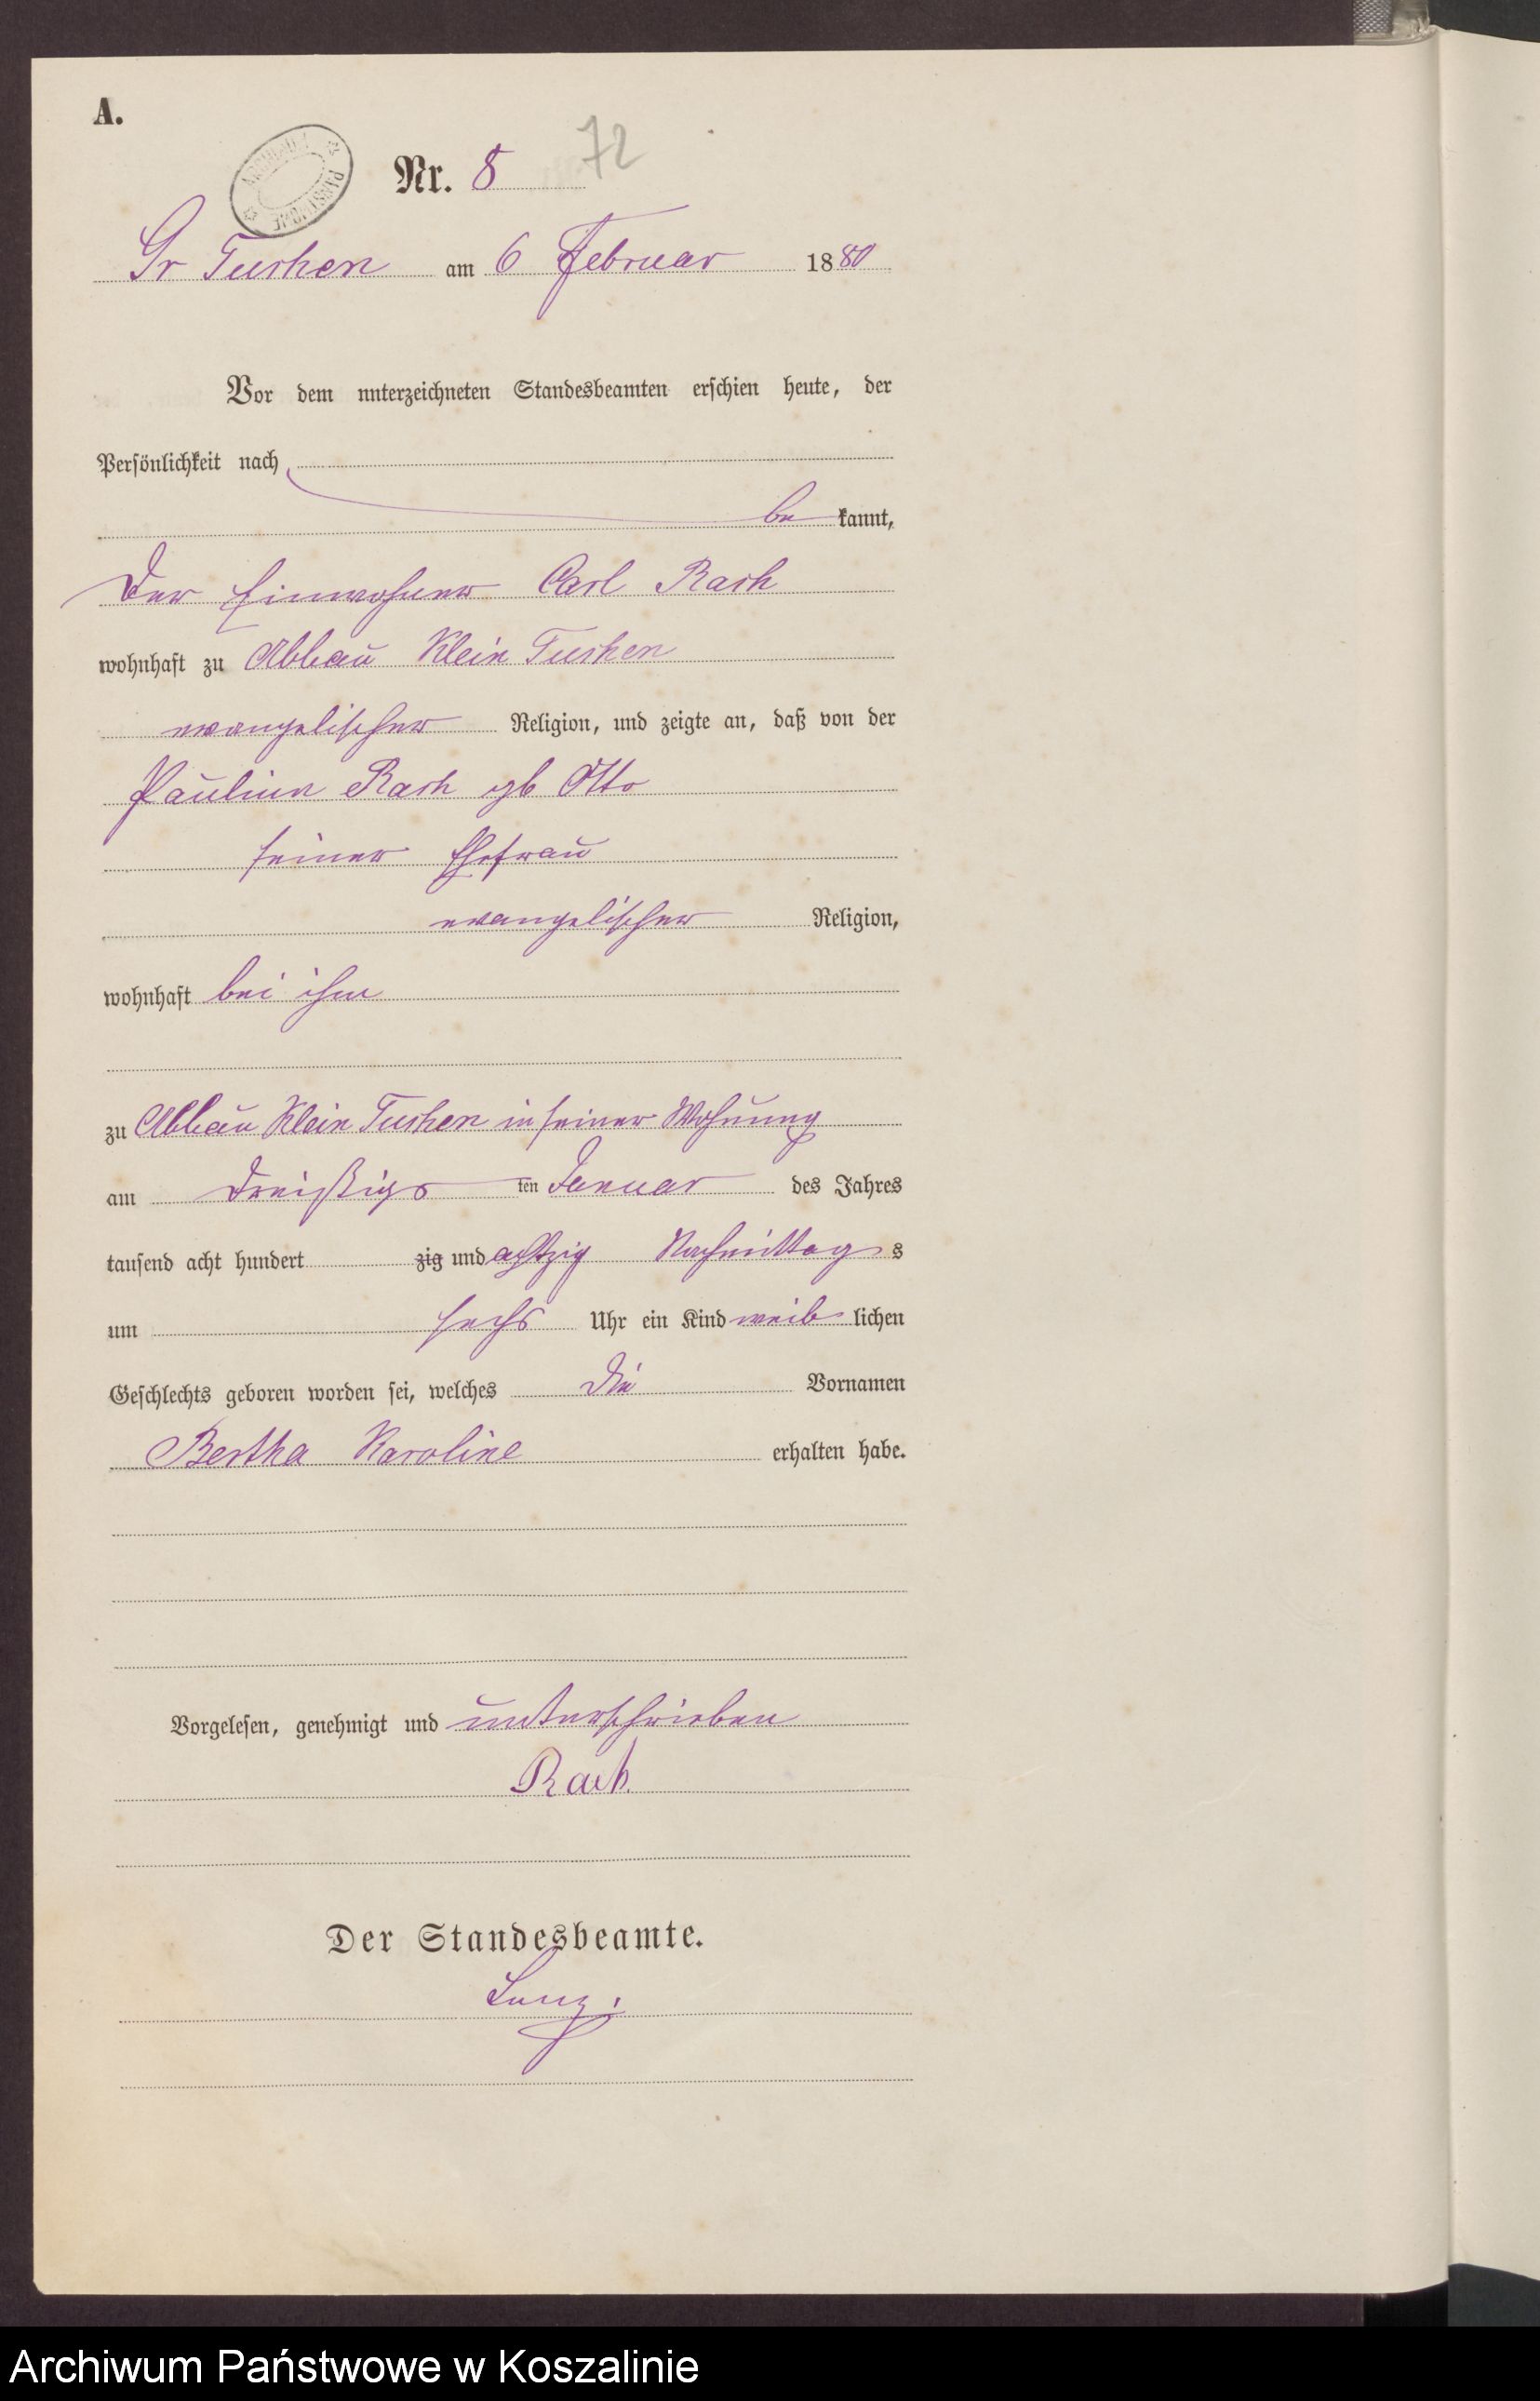 A.
Nr. 8 72
Gr Tuchen am 6 Februar 1880
Vor dem nnterzeichneten Standesbeamten erschien heute, der
Persönlichkeit nach
be kannt,
Der Einwohner Carl Rach
wohnhaft zu Abbau Klein Tuchen
evangelischer Religion, und zeigte an, daß von der
Pauline Rach gb Otto
seiner Ehefrau
evangelischer Religion,
wohnhaft bei ihm
zu Abbau Klein Tuchen in seiner Wohnung
am Dreißigs ten Januar des Jahres
tausend acht hundert zig und achtzig Nachmittag s
um sechs Uhr ein Kind weib lichen
Geschlechts geboren worden sei, welches die Vornamen
Bertha Karoline erhalten habe.
Vorgelesen, genehmigt und unterschrieben
Rach
Der Standesbeamte.
Archiwum Państwowe w Koszalinie